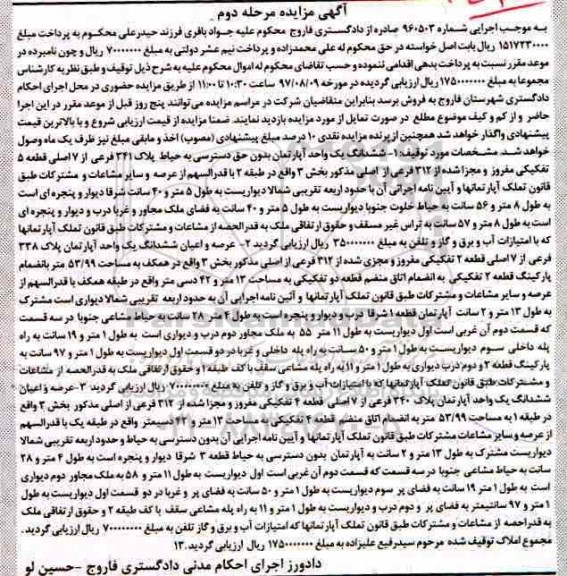 آگهی مزایده مرحله دوم
به موجب اجرایی شماره ۹۶۰۵۰۳ صادره از دادگستری فاروج محکوم علیه جواد باقری فرزند حیدرعلی محکوم به پرداخت مبلغ
۱۵۱۷۲۳۰۰۰۰ ریال بابت اصل خواسته در حق محکوم له علی محمدزاده و پرداخت نیم عشر دولتی به مبلغ ۷۰۰۰۰۰۰۰ ریال و چون نامبرده در
موعد مقرر نسبت به پرداخت بدهی اقدامی ننموده و حسب تقاضای محکوم له اموال محکوم علیه به شرح ذیل توقیف و طبق نظریه کارشناس
مجموعا به مبلغ ۱۷۵۰۰۰۰۰۰۰ ریال ارزیابی گردیده در مورخه ۹۷/۰۸/۰۹ ساعت ۱۰:۳۰ تا ۱۱:۰۰ از طریق مزایده حضوری در محل اجرای احکام
دادگستری شهرستان فاروج به فروش برسد بنابراین متقاضیان شرکت در مراسم مزایده می توانند پنج روز قبل از موعد مقرر در این اجرا
حاضر و از کم و کیف موضوع مطلع در صورت تمایل از مورد مزایده بازدید نمایند. ضمنا مزایده از قیمت ارزیابی شروع و با بالاترین قیمت
پیشنهادی واگذار خواهد شد همچنین از برنده مزایده نقدی ۱۰ درصد مبلغ پیشنهادی (مصوب) اخذ و مابقی مبلغ نیز ظرف یک ماه وصول
خواهد شد. مشخصات مورد توقیف: ۱- ششدانگ یک واحد آپارتمان بدون حق دسترسی به حیاط پلاک ۳۴۱ فرعی از ۷ اصلی قطعه ۵
تفکیکی مفروز و مجزا شده از ۳۱۲ فرعی از اصلی مذکور بخش ۳ واقع در طبقه ۲ با قدرالسهم از عرصه و سایر مشاعات و مشترکات طبق
قانون تملک آپارتمانها و آیین نامه اجرائی آن با حدود اربعه تقریبی شمالا دیواریست به طول ۵ متر و ۴۰ سانت شرقا دیوار و پنجره ای است
به طول ۸ متر و ۵۶ سانت به حیاط خلوت جنوبا دیواریست به طول ۵ متر و ۴۰ سانت به فضای ملک مجاور و غربا درب و دیوار و پنجره ای
است به طول ۸ متر و ۵۷ سانت به تراس غیر مسقف و حقوق ارتفاقی ملک به قدرالحصه از مشاعات و مشترکات طبق قانون تملک آپارتمانها
که با امتیازات آب و برق و گاز و تلفن به مبلغ ۳۵۰۰۰۰۰۰۰ ریال ارزیابی گردید ۲- عرصه و اعیان ششدانگ یک واحد آپارتمان پلاک ۳۳۸
فرعی از ۷ اصلی قطعه ۲ تفکیکی مفروز و مجزی شده از ۳۱۲ فرعی از اصلی مذکور بخش ۳ واقع در همکف به مساحت ۵۳/۹۹ متر بانضمام
پارکینگ قطعه ۲ تفکیکی به انضمام اتاق منضم قطعه دو تفکیکی به مساحت ۱۳ متر و ۴۲ دسی متر واقع در طبقه همکف با قدرالسهم از
عرصه و سایر مشاعات و مشترکات طبق قانون تملک آپارتمانها و آئین نامه اجرایی آن به حدود اربعه تقریبی شمالا دیواری است مشترک
به طول ۱۳ متر و ۲ سانت آپارتمان قطعه ۱ شرقا درب و دیوار و پنجره است به طول ۴ متر ۲۸ سانت به حیاط مشاعی جنوبا در سه قسمت
که قسمت دوم آن غربی است اول دیواریست به طول ۱۱ متر ۵۵ به ملک مجاور دوم درب و دیواری است به طول ۱ متر و ۱۹ سانت به راه
پله داخلی سوم دیواریست به طول ۱ متر و ۵۰ سانت به راه پله داخلی و غربا در دو قسمت اول دیواریست به طول ۱ متر و ۹۷ سانت به
پارکینگ قطعه ۲ و دوم درب دیواری به طول ۱ متر و ۱۱ به راه پله مشاعی سقف با کف طبقه ۱ و حقوق ارتفاقی ملک به قدرالحصه از مشاعات
و مشترکات طبق قانون تملک آپارتمانها که با امتیازات آب و برق و گاز و تلفن به مبلغ ۷۰۰۰۰۰۰۰۰ ریال ارزیابی گردید ۳- عرصه و اعیان
ششدانگ یک واحد آپارتمان پلاک ۳۴۰ فرعی از ۷ اصلی قطعه ۴ تفکیکی مفروز و مجزا شده از ۳۱۲ فرعی از اصلی مذکور بخش ۳ واقع
در طبقه ۱ به مساحت ۵۳/۹۹ متر به انضمام اتاق منضم قطعه ۴ تفکیکی با مساحت ۱۳ متر و واقع در طبقه یک با قدرالسهم
از عرصه و سایر مشاعات مشترکات طبق قانون تملک آپارتمانها و آیین نامه اجرایی آن بدون دسترسی به حیاط و حدود اربعه تقریبی شمالا
دیواریست مشترک به طول ۱۳ متر و ۲ سانت به آپارتمان بدون دسترسی به حیاط قطعه ۳ شرقا دیوار و پنجره است به طول ۴ متر و ۲۸
سانت به حیاط مشاعی جنوبا در سه قسمت که قسمت دوم آن غربی است اول دیواریست به طول ۱۱ متر و ۵۸ به ملک مجاور دوم دیواری
است به طول ۱ متر ۱۹ سانت به فضای پر سوم دیواریست به طول ۱ متر و ۵۰ سانت به فضای پر و غربا در دو قسمت اول دیواریست به طول
۱ متر و ۹۷ سانتیمتر به فضای پر و دوم درب و دیواریست به طول ۱ متر و ۱۱ به راه پله مشاعی سقف با کف طبقه ۲ و حقوق ارتفاقی ملک
به قدراحصه از مشاعات و مشترکات طبق قانون تملک آپارتمانها که امتیازات آب و برق و گاز تلفن به مبلغ ۷۰۰۰۰۰۰۰۰ ریال ارزیابی گردید.
مجموع املاک توقیف شده مرحوم سیدرفیع علیزاده به مبلغ ۱۷۵۰۰۰۰۰۰۰ ریال ارزیابی گردید. ۱۳
دادورز اجرای احکام مدنی دادگستری فاروج - حسین لو